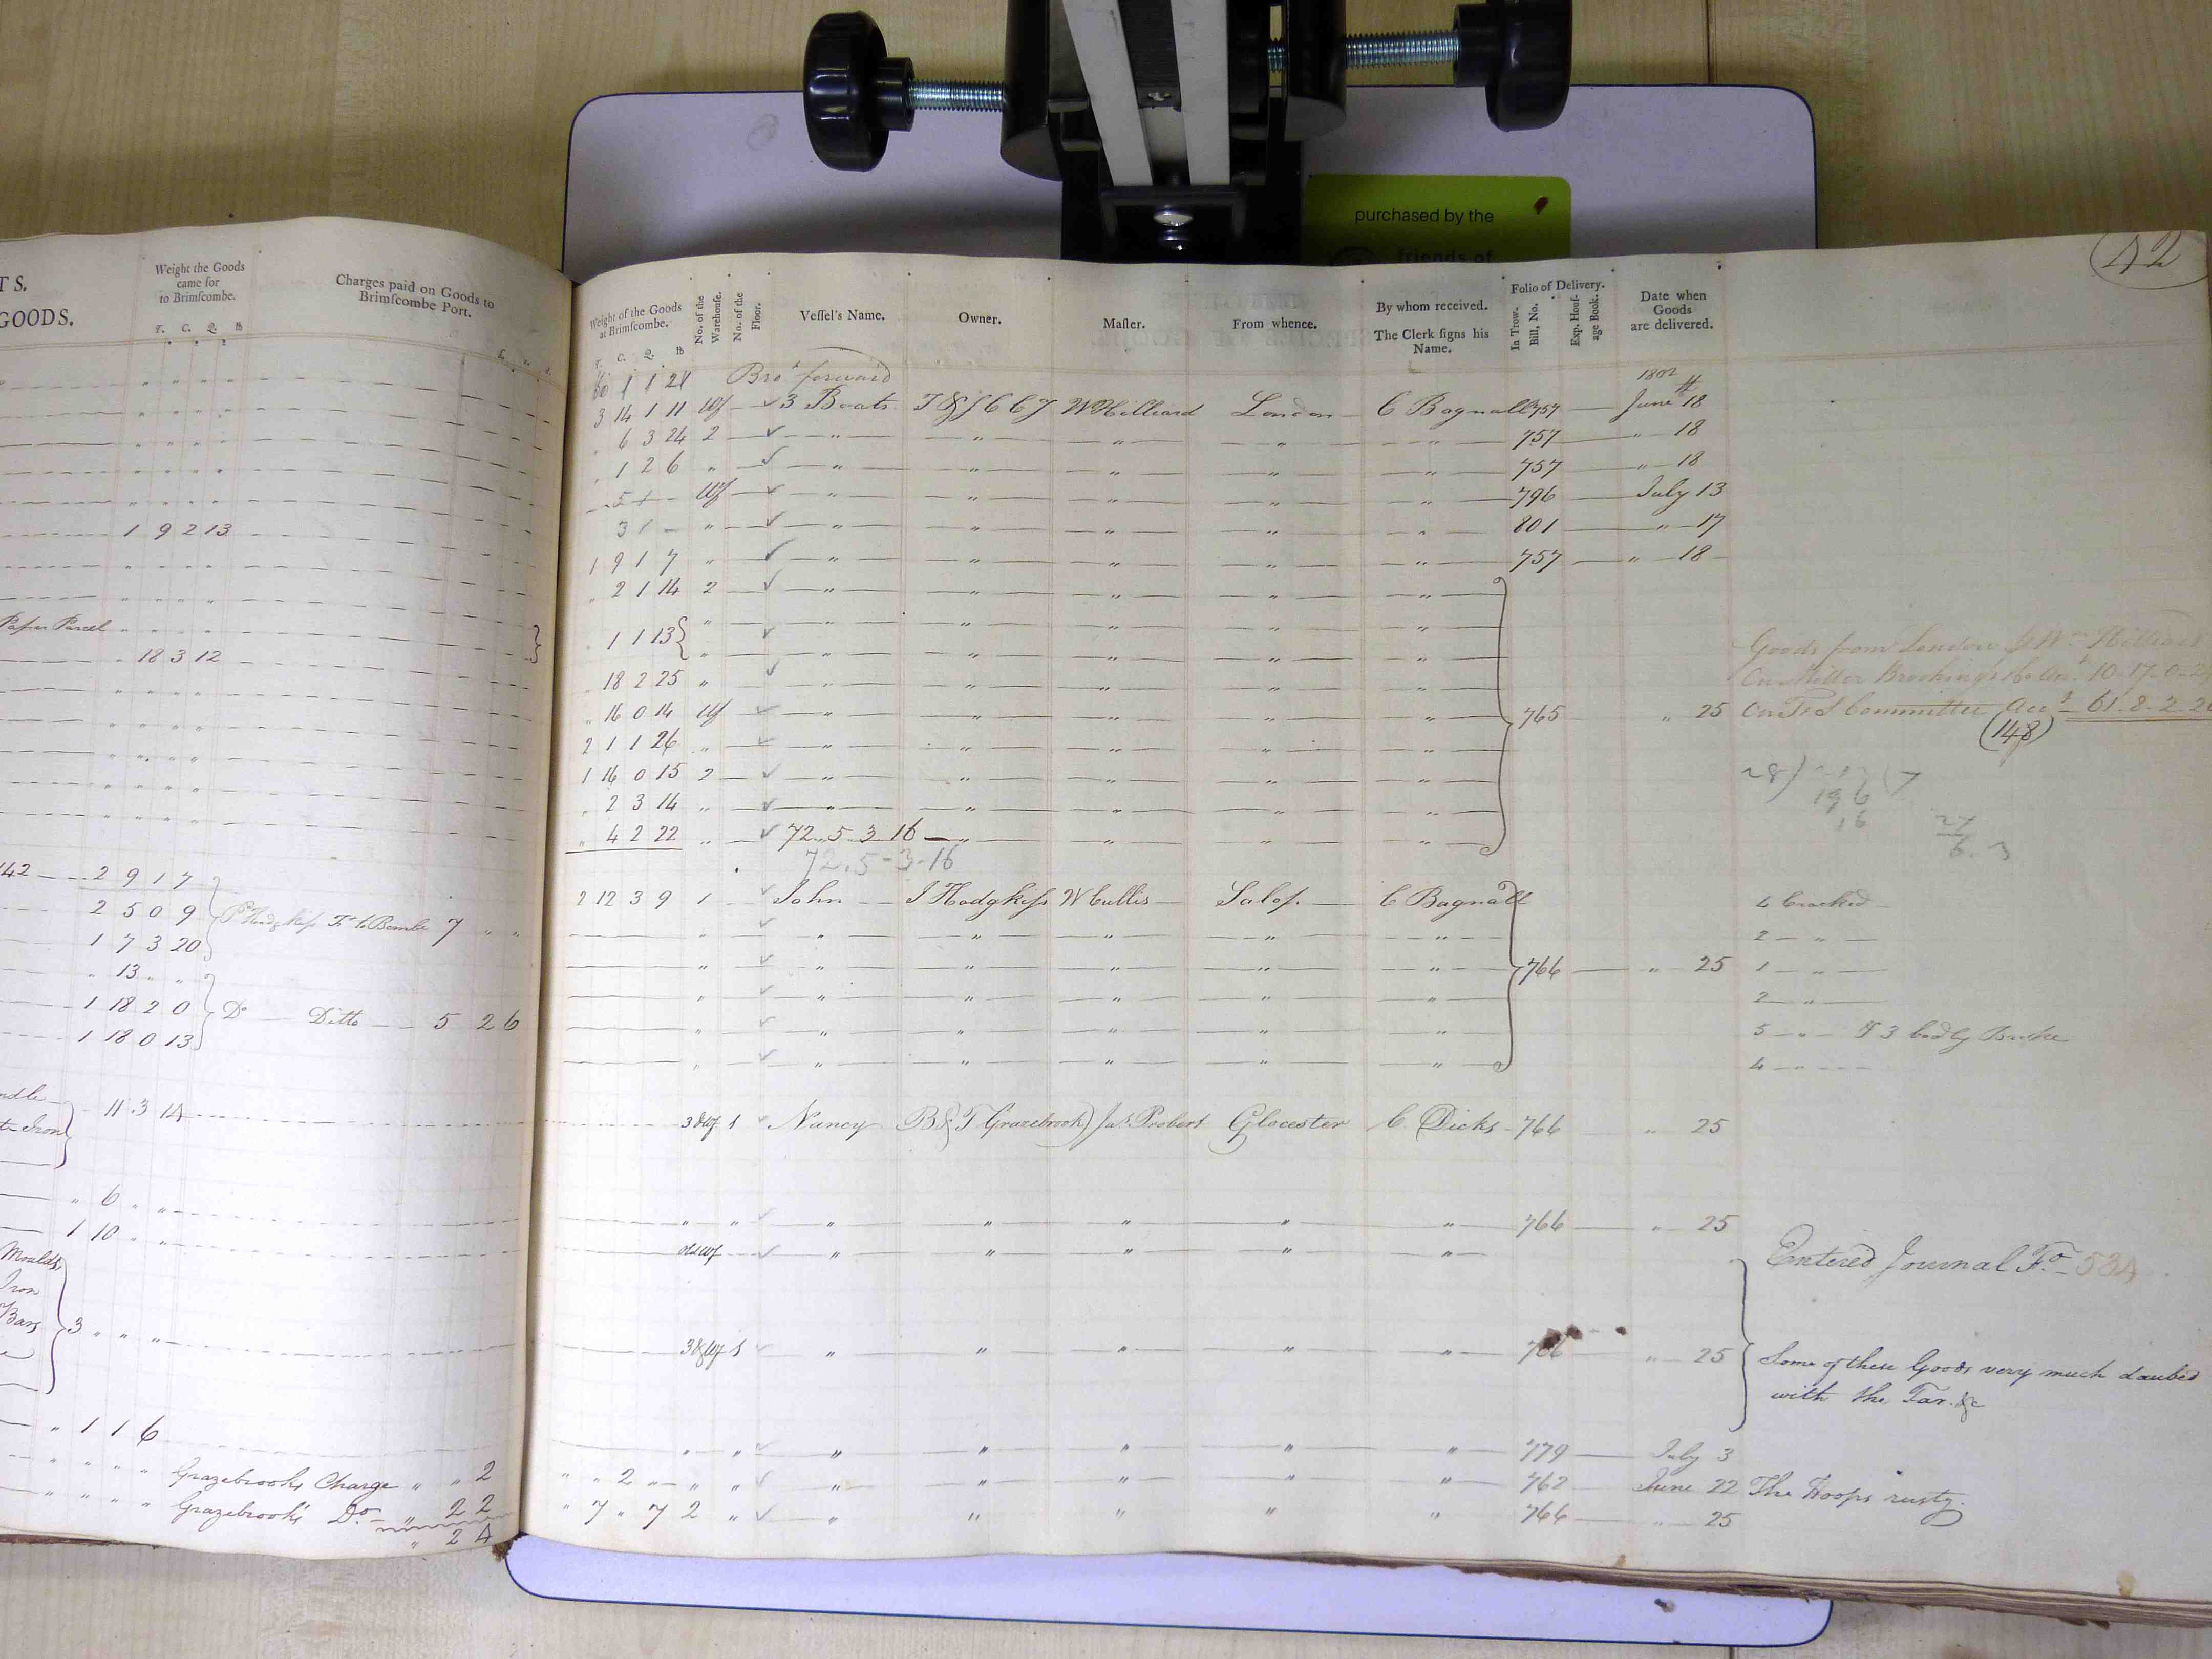 purchased by the
friends of
42
TS.
GOODS.
Weight the Goods
came for
to Brimſcombe.
T. C. Q. lb
Charges paid on Goods to
Brimſcombe Port.
1 9 2 13
Paper Parcel
18 3 12
142 — 2 9 1 7
2 5 0 9
1 7 3 20
7 " "
" 13 " "
1 18 2 0
Do Ditto 5 2 6
1 18 0 13
11 3 14
" 6 " "
1 10 " "
Moulds
Iron
Bars
3 " " "
" 1 1 6
Grazebrooks Charge " " 2
Grazebrook's Do " 2 2
" 2 4
Weight of the Goods
at Brimſcombe.
T. C. Q. lb
No. of the
Warehouſe.
No. of the
Floor.
Veſſel's Name.
Owner.
Maſter.
From whence.
By whom received.
The Clerk ſigns his
Name.
Folio of Delivery.
In Trow.
Bill, No.
Exp. Houſ-
age Book.
Date when
Goods
are delivered.
Brot forward
1802
3 14 1 11 Wf ✓ 3 Boats W Hilliard London C Bagnall 757 June 18
" 6 3 24 2 ✓ " " " " " 757 " 18
" 1 2 6 " ✓ " " " " " 757 " 18
Wf ✓ " " " " " 796 July 13
3 1 - " ✓ " " " " " 801 " 17
1 9 1 7 " ✓ " " " " " 757 " 18
" 2 1 14 2 ✓ " " " " "
" 1 1 13 " ✓ " " " " "
" " " " " "
" 18 2 25 " ✓ " " " " "
" 16 0 14 Wf ✓ " " " " " 765 " 25
2 1 1 26 " ✓ " " " " "
1 16 0 15 2 ✓ " " " " "
" 2 3 14 " ✓ " " " " "
" 4 2 22 " ✓ 72.. 5.. 3.. 16 " " " " "
72. 5 - 3 - 16
Goods from London
10-17-0-
Committee Acct 61. 8. 2. 2
(148)
196
16
2 12 3 9 1 ✓ John J Hodgkiſs W Cullis Salop C Bagnall 4 Cracked
" ✓ " " " " " 2 "
" ✓ " " " " " 766 " 25 1 "
" ✓ " " " " " 2 "
" ✓ " " " " " 5 " & 3 badly Broke
" ✓ " " " " " 4 "
3&Wf 1 ✓ Nancy B & T Grazebrook Jas Probert Glocester C Dicks 766 " 25
" " ✓ " " " " " 766 " 25
old Wf ✓ " " " " "
Entered Journal Fo 534
3&Wf 1 ✓ " " " " " 766 " 25
Some of these Goods very much daubed
with the Tar. &c
" " ✓ " " " " " 779 July 3
" " 2 " " " ✓ " " " " " 762 June 22 The Hoops rusty.
" 7 " 7 2 " ✓ " " " " " 766 " 25